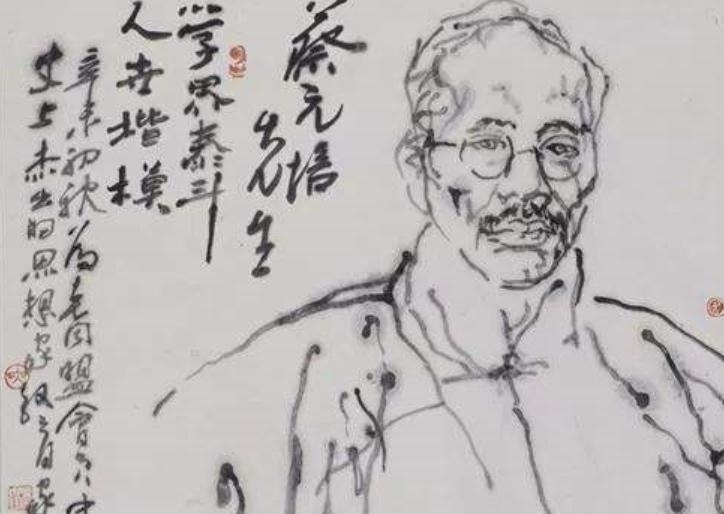 蔡元培
先生
学界泰斗
人世楷模
辛未初秋为老同盟会
史上杰出的思想家教育家